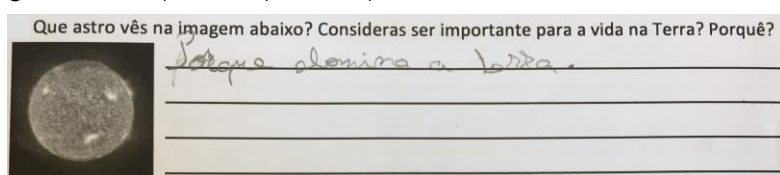 Que astro vês na imagem abaixo? Consideras ser importante para a vida na Terra? Porquê?
Porque alomina a terra.